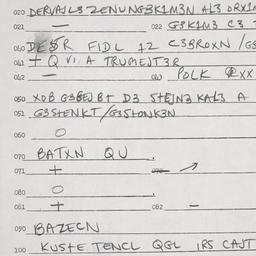 020 DERVAJL3 ZENUNGBK1M3N AL3 ORX1M
021 — 022 G3K1M3 C3
040 DESR FIDL 12 C3BROXN /G3
041 + Q VI. A TRUMEJT3R
042 — 043 POLK XX
050 XOB G3GEJBT D3 STEJN3 KAL3 A
051 G3STENKT/G3STONK3N
060 O
070 BATXN QU
071 +
080 O
081 + 082 —
090 BAZECN
100 KUSTE TENCL QGL IRS CAJT